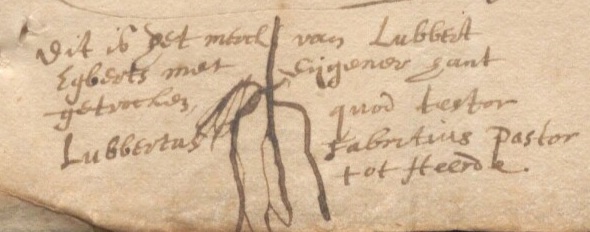 dit is het merck van Lubbert
Egberts met eijgener hant
getrocken, quod testor
Lubbertus Fabritius Pastor
tot Heerde.